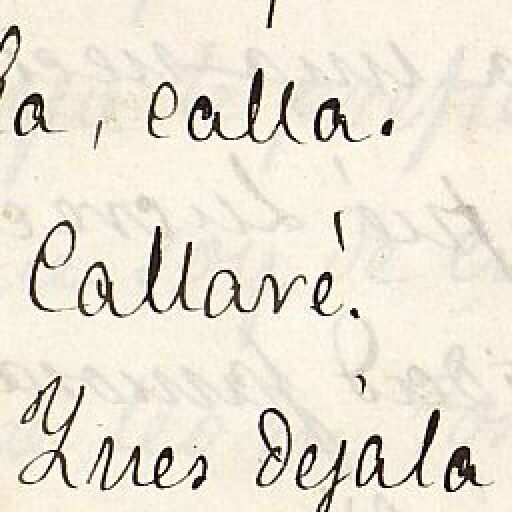 la, calla.
Callaré.
Ynes Dejála